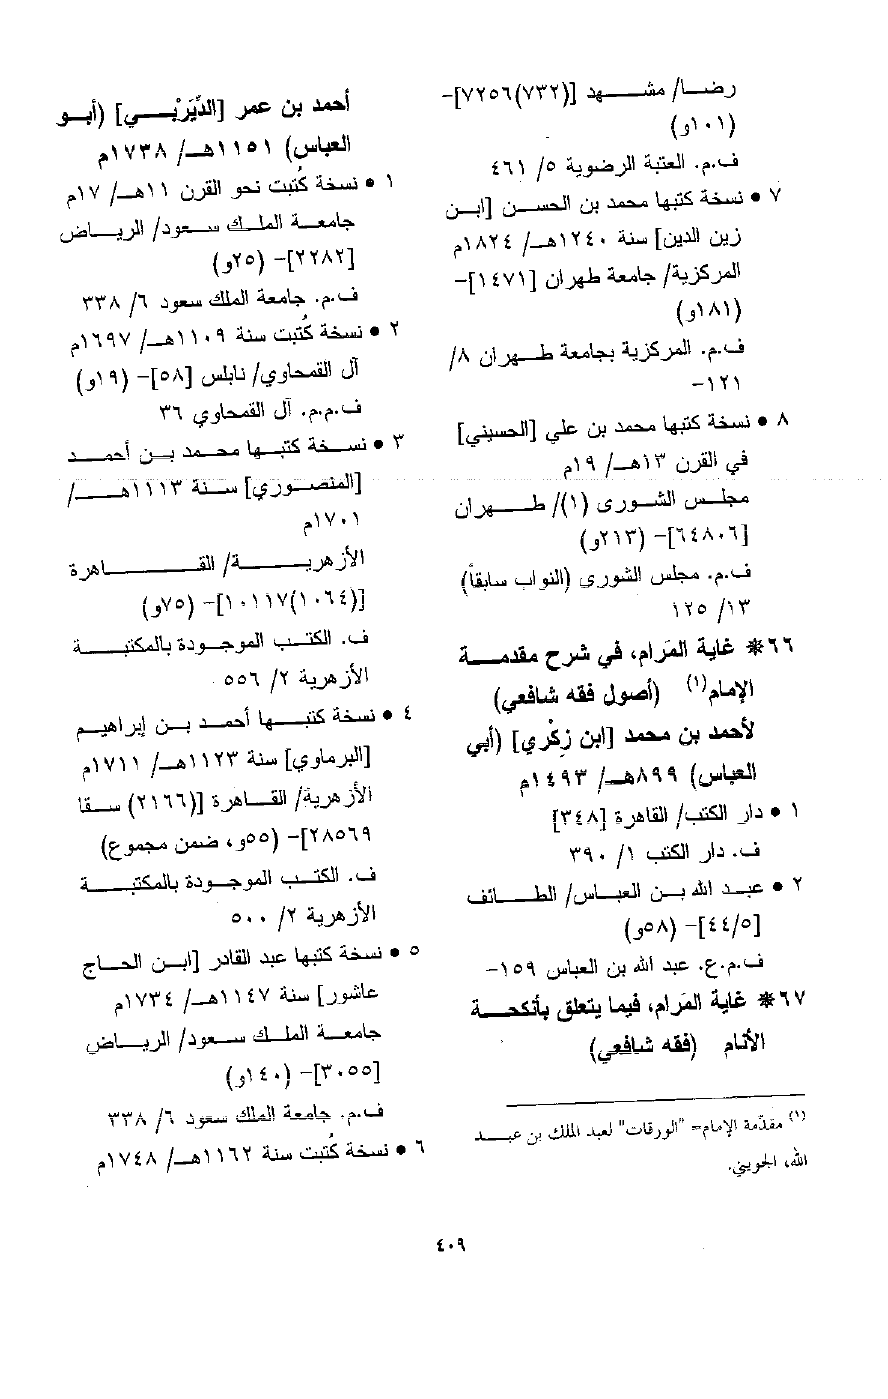 رضا/ مشهد [(٧٣٢)٧٢٥٦]-
(١٠١و)
ف.م. العتبة الرضوية ٥/ ٤٦١
٧ • نسخة كتبها محمد بن الحسن [ابن
زين الدين] سنة ١٢٤٠هـ/ ١٨٢٤م
المركزية/ جامعة طهران [١٤٧١]-
(١٨١و)
ف.م. المركزية بجامعة طهران ٨/
١٢١-
٨ • نسخة كتبها محمد بن علي [الحسيني]
في القرن ١٣هـ/ ١٩م
مجلس الشورى (١)/ طهران
[٦٤٨٠٦]- (٢١٣و)
ف.م. مجلس الشورى (النواب سابقاً)
١٣/ ١٢٥
٦٦* غاية المَرام، في شرح مقدمة
الإمام(١) (أصول فقه شافعي)
لأحمد بن محمد [ابن زِكْري] (أبي
العباس) ٨٩٩هـ/ ١٤٩٣م
١ • دار الكتب/ القاهرة [٣٤٨]
ف. دار الكتب ١/ ٣٩٠
٢ • عبد الله بن العباس/ الطائف
[٤٤/٥]- (٥٨و)
ف.م.ع. عبد الله بن العباس ١٥٩-
٦٧* غاية المَرام، فيما يتعلق بأنكحة
الأنام (فقه شافعي)
(١) مقدّمة الإمام= "الورقات" لعبد الملك بن عبد
الله، الجويني.
أحمد بن عمر [الدَّيَرْبي] (أبو
العباس) ١١٥١هـ/ ١٧٣٨م
١ • نسخة كُتبت نحو القرن ١١هـ/ ١٧م
جامعة الملك سعود/ الرياض
[٢٢٨٢]- (٢٥و)
ف.م. جامعة الملك سعود ٦/ ٣٣٨
٢ • نسخة كُتبت سنة ١١٠٩هـ/ ١٦٩٧م
آل القمحاوي/ نابلس [٥٨]- (١٩و)
ف.م.م. آل القمحاوي ٣٦
٣ • نسخة كتبها محمد بن أحمد
[المنصوري] سنة ١١١٣هـ/
١٧٠١م
الأزهرية/ القاهرة
[(١٠٦٤)١٠١١٧]- (٧٥و)
ف. الكتب الموجودة بالمكتبة
الأزهرية ٢/ ٥٥٦
٤ • نسخة كتبها أحمد بن إبراهيم
[البرماوي] سنة ١١٢٣هـ/ ١٧١١م
الأزهرية/ القاهرة [(٢١٦٦) سقا
٢٨٥٦٩]- (٥٥و، ضمن مجموع)
ف. الكتب الموجودة بالمكتبة
الأزهرية ٢/ ٥٠٠
٥ • نسخة كتبها عبد القادر [ابن الحاج
عاشور] سنة ١١٤٧هـ/ ١٧٣٤م
جامعة الملك سعود/ الرياض
[٣٠٥٥]- (١٤٠و)
ف.م. جامعة الملك سعود ٦/ ٣٣٨
٦ • نسخة كُتبت سنة ١١٦٢هـ/ ١٧٤٨م
٤٠٩